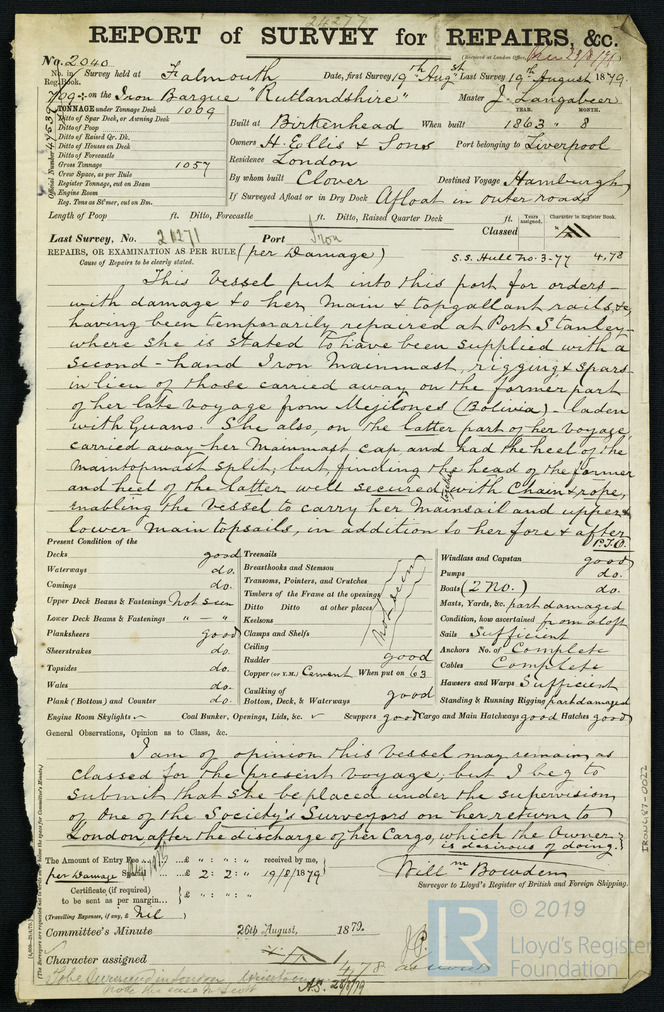 24277
REPORT OF SURVEY FOR REPAIRS, &c.
No. 2040
(Received at London Office
No. in Reg. Book. Survey held at Falmouth Date, first Survey 19th Augst Last Survey 19th August 1879.
709 on the Iron Barque "Rutlandshire" Master J. Langabeer
TONNAGE under Tonnage Deck 1009
Ditto of Spar Deck, or Awning Deck
Ditto of Poop
Ditto of Raised Qr. Dk.
Ditto of Houses on Deck
Ditto of Forecastle
Gross Tonnage 1057
Crew Space, as per Rule
Register Tonnage, cut on Beam
Engine Room
Reg. Tons as St'mer, cut on Bm.
Official Number
YEAR. MONTH.
Built at Birkenhead When built 1863 8
Owners H. Ellis & Sons Port belonging to Liverpool
Residence London
By whom built Clover Destined Voyage Hamburgh
If Surveyed Afloat or in Dry Dock Afloat in outer roads
Length of Poop ft. Ditto, Forecastle ft. Ditto, Raised Quarter Deck ft.
Years assigned. Character in Register Book.
Classed
Last Survey, No. 21271 Port Iron
REPAIRS, OR EXAMINATION AS PER RULE (per Damage) S.S. Hull No. 3-77 4,78
Cause of Repairs to be clearly stated.
This Vessel put into this port for orders—
with damage to her Main & topgallant rails, &c,
having been temporarily repaired at Port Stanley—
where she is stated to have been supplied with a
second-hand Iron Mainmast, rigging & spars
in lieu of those carried away on the former part
of her late voyage from Mejilones (Bolivia)—laden
with Guano. She also, on the latter part of her voyage,
carried away her Mainmast cap, and had the heel of the
Maintopmast split; but, finding the head of the former
and heel of the latter well secured together with Chain & rope,
enabling the vessel to carry her Mainsail and upper &
lower Main topsails, in addition to her fore & after
P.T.O.
Present Condition of the
Decks good
Waterways do.
Comings do.
Upper Deck Beams & Fastenings Not seen
Lower Deck Beams & Fastenings " — "
Planksheers good
Sheerstrakes do.
Topsides do.
Wales do.
Plank (Bottom) and Counter do.
Engine Room Skylights ✓
Treenails
Breasthooks and Stemson
Transoms, Pointers, and Crutches
Timbers of the Frame at the openings
Ditto Ditto at other places
Keelsons
Clamps and Shelfs
Ceiling
not seen
Rudder good
Copper (or Y.M.) Cement When put on 63
Caulking of Bottom, Deck, & Waterways good
Coal Bunker, Openings, Lids, &c. ✓ Scuppers good
Windlass and Capstan good
Pumps do.
Boats (2 No.) do.
Masts, Yards, &c. part damaged
Condition, how ascertained from aloft
Sails Sufficient
Anchors No. of Complete
Cables Complete
Hawsers and Warps Sufficient
Standing & Running Rigging part damaged
Cargo and Main Hatchways good Hatches good
General Observations, Opinion as to Class, &c.
I am of opinion this vessel may remain as
classed for the present voyage; but I beg to
submit that she be placed under the supervision
of one of the Society's Surveyors on her return to
London, after the discharge of her Cargo, which the Owner
is desirous of doing.
The Amount of Entry Fee ... £ " : " : " received by me,
per Damage Special £ 2 : 2 : " 19/8/1879
Certificate (if required) to be sent as per margin... £ " : " : "
(Travelling Expenses, if any, £ Nil )
Willm Bowden
Surveyor to Lloyd's Register of British and Foreign Shipping.
Committee's Minute 26th August, 1879.
Character assigned
4,78 as noted
To be Surveyed in London
Note this case
AS. 28/8/79
IRON487-0022
LR
© 2019
Lloyd's Register
Foundation